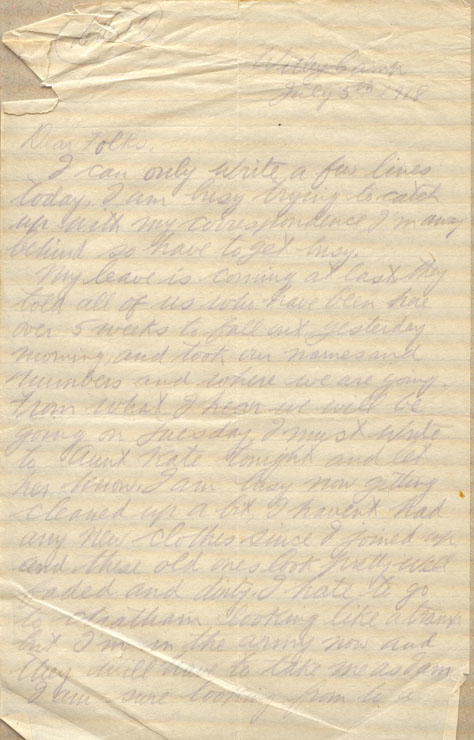 Witley Camp
July 5th 1918
Dear Folks.
I can only write a few lines
today. I am busy trying to catch
up with my correspondence I'm away
behind so have to get busy.
My leave is coming at last they
told all of us who have been here
over 5 weeks to fall out yesterday
morning and took our names and
numbers and where we are going.
From what I hear we will be
going on Tuesday, I must write
to Aunt Kate tonight and let
her know. I am busy now getting
cleaned up a bit, I havent had
any new clothes since I joined up
and these old ones look pretty well
faded and dirty. I hate to go
to Chatham looking like a tramp
but I'm in the army now and
they will have to take me as I am
I am sure looking forw to a